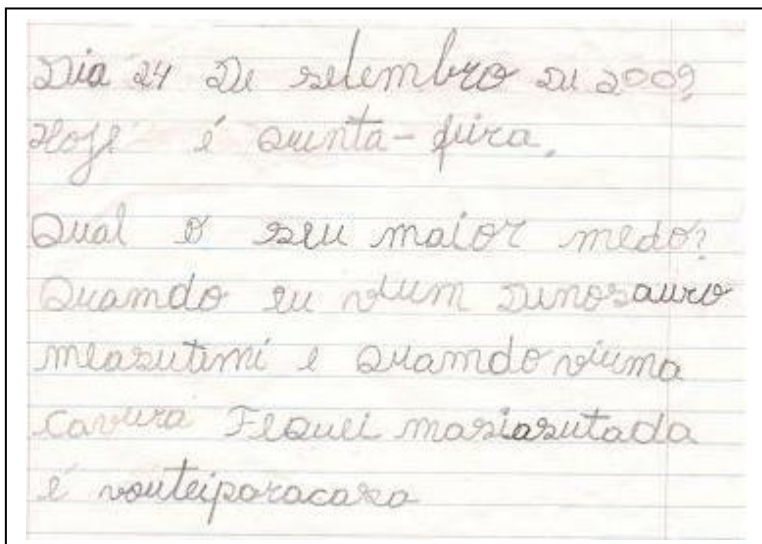 Dia 24 De setembro De 2009
Hoje é Quinta-feira.
Qual o seu maior medo?
Quamdo eu vium Dinosauro
measutimi e Quamdo viuma
cavura Fequei masiasutada
é vouteiparacasa